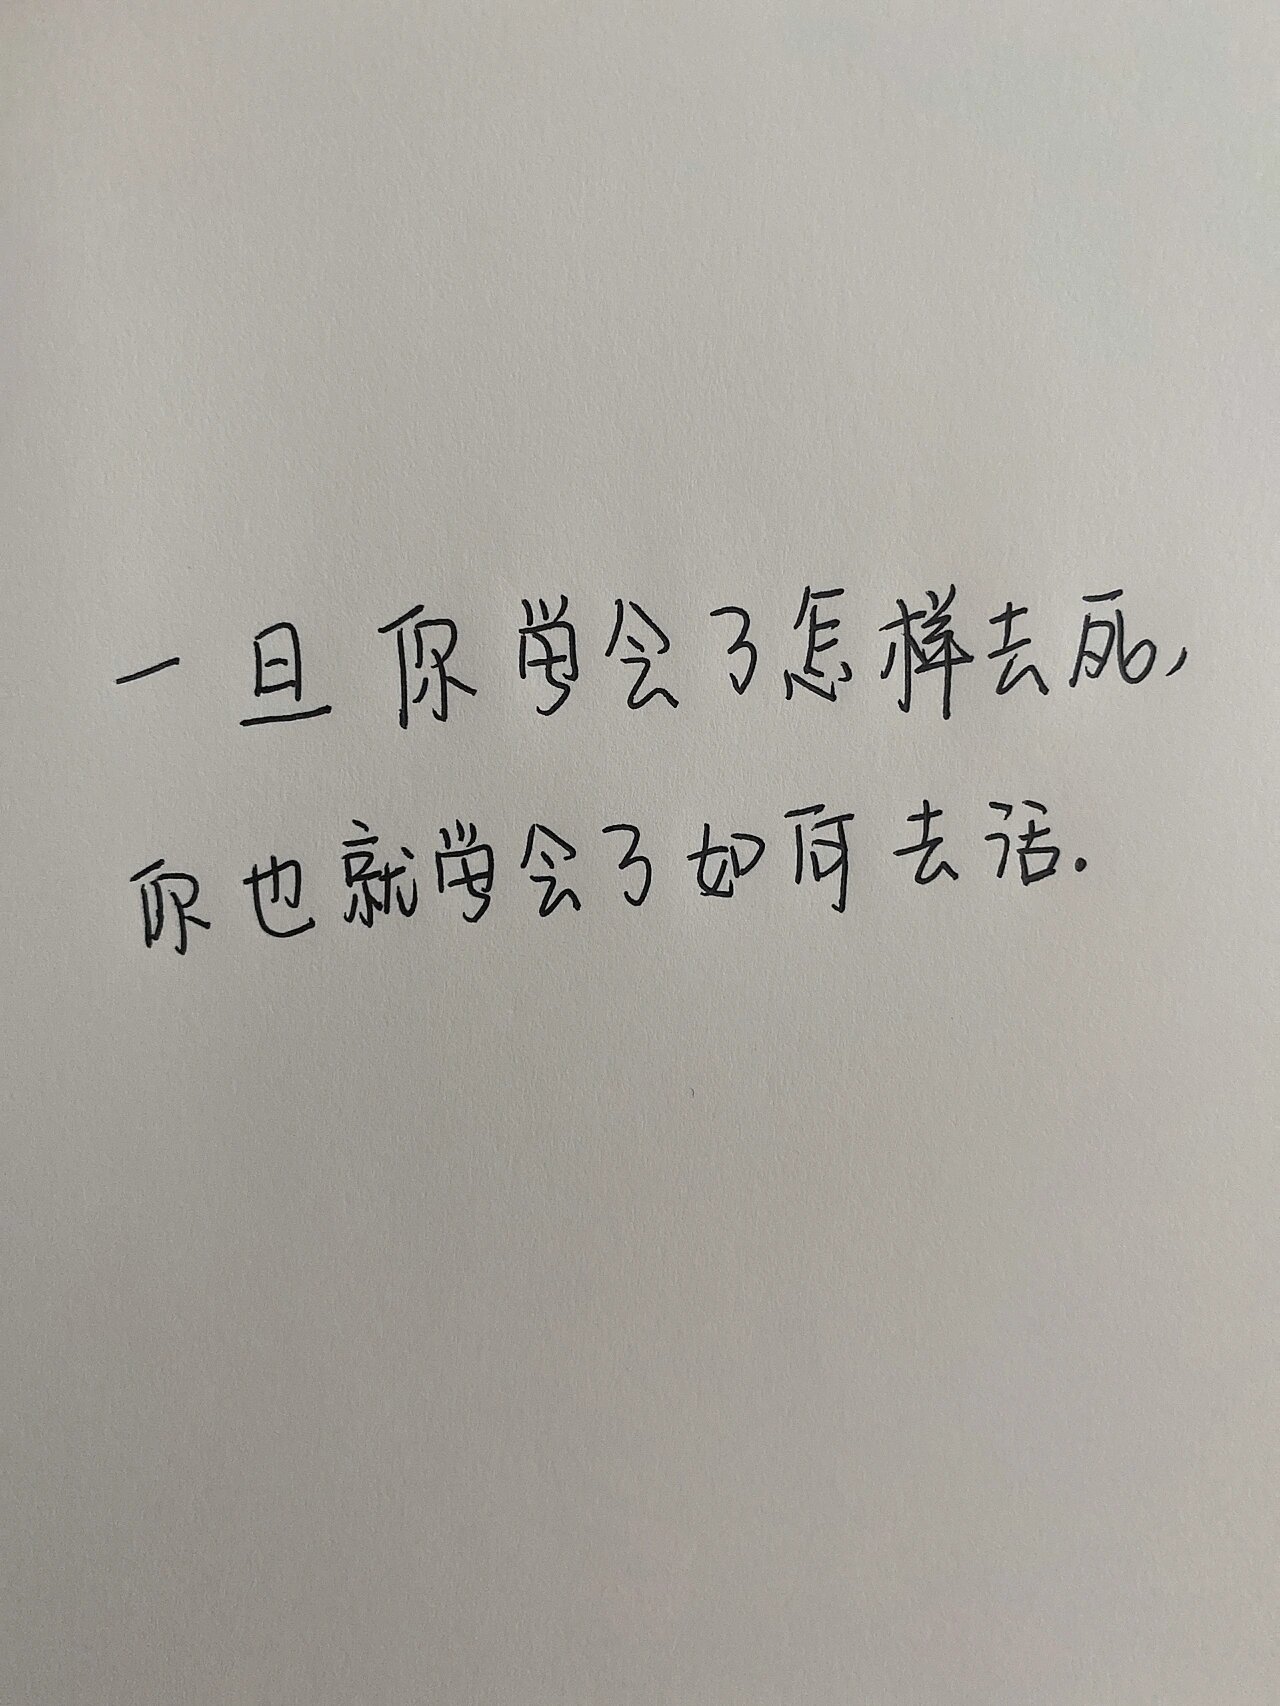 一旦你学会了怎样去死,
你也就学会了如何去活.